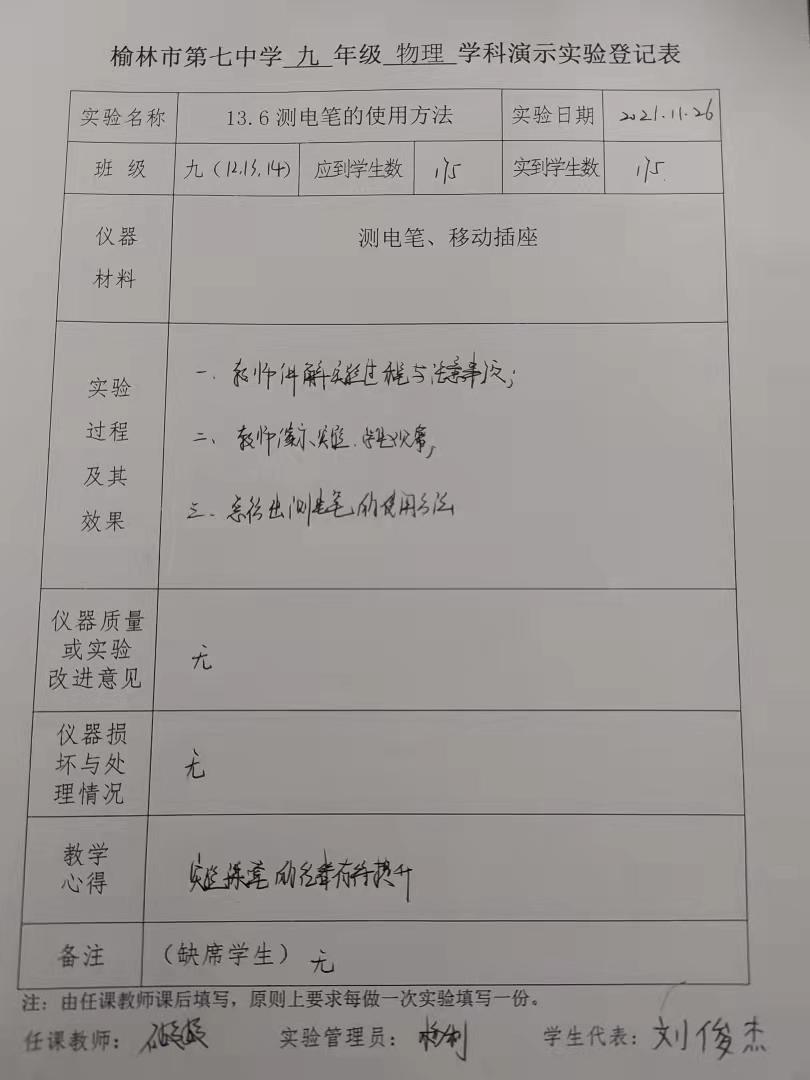 榆林市第七中学 九 年级 物理 学科演示实验登记表
实验名称 13.6测电笔的使用方法 实验日期 2021.11.26
班 级 九(12,13,14) 应到学生数 175 实到学生数 175
仪器
材料
测电笔、移动插座
实验
过程
及其
效果
一、教师讲解实验过程与注意事项;
二、教师演示实验,学生观察;
三、总结出测电笔的使用方法
仪器质量
或实验
改进意见
无
仪器损
坏与处
理情况
无
教学
心得
实验课堂的效率有待提升
备注 (缺席学生) 无
注:由任课教师课后填写,原则上要求每做一次实验填写一份。
任课教师: 实验管理员: 学生代表:刘俊杰